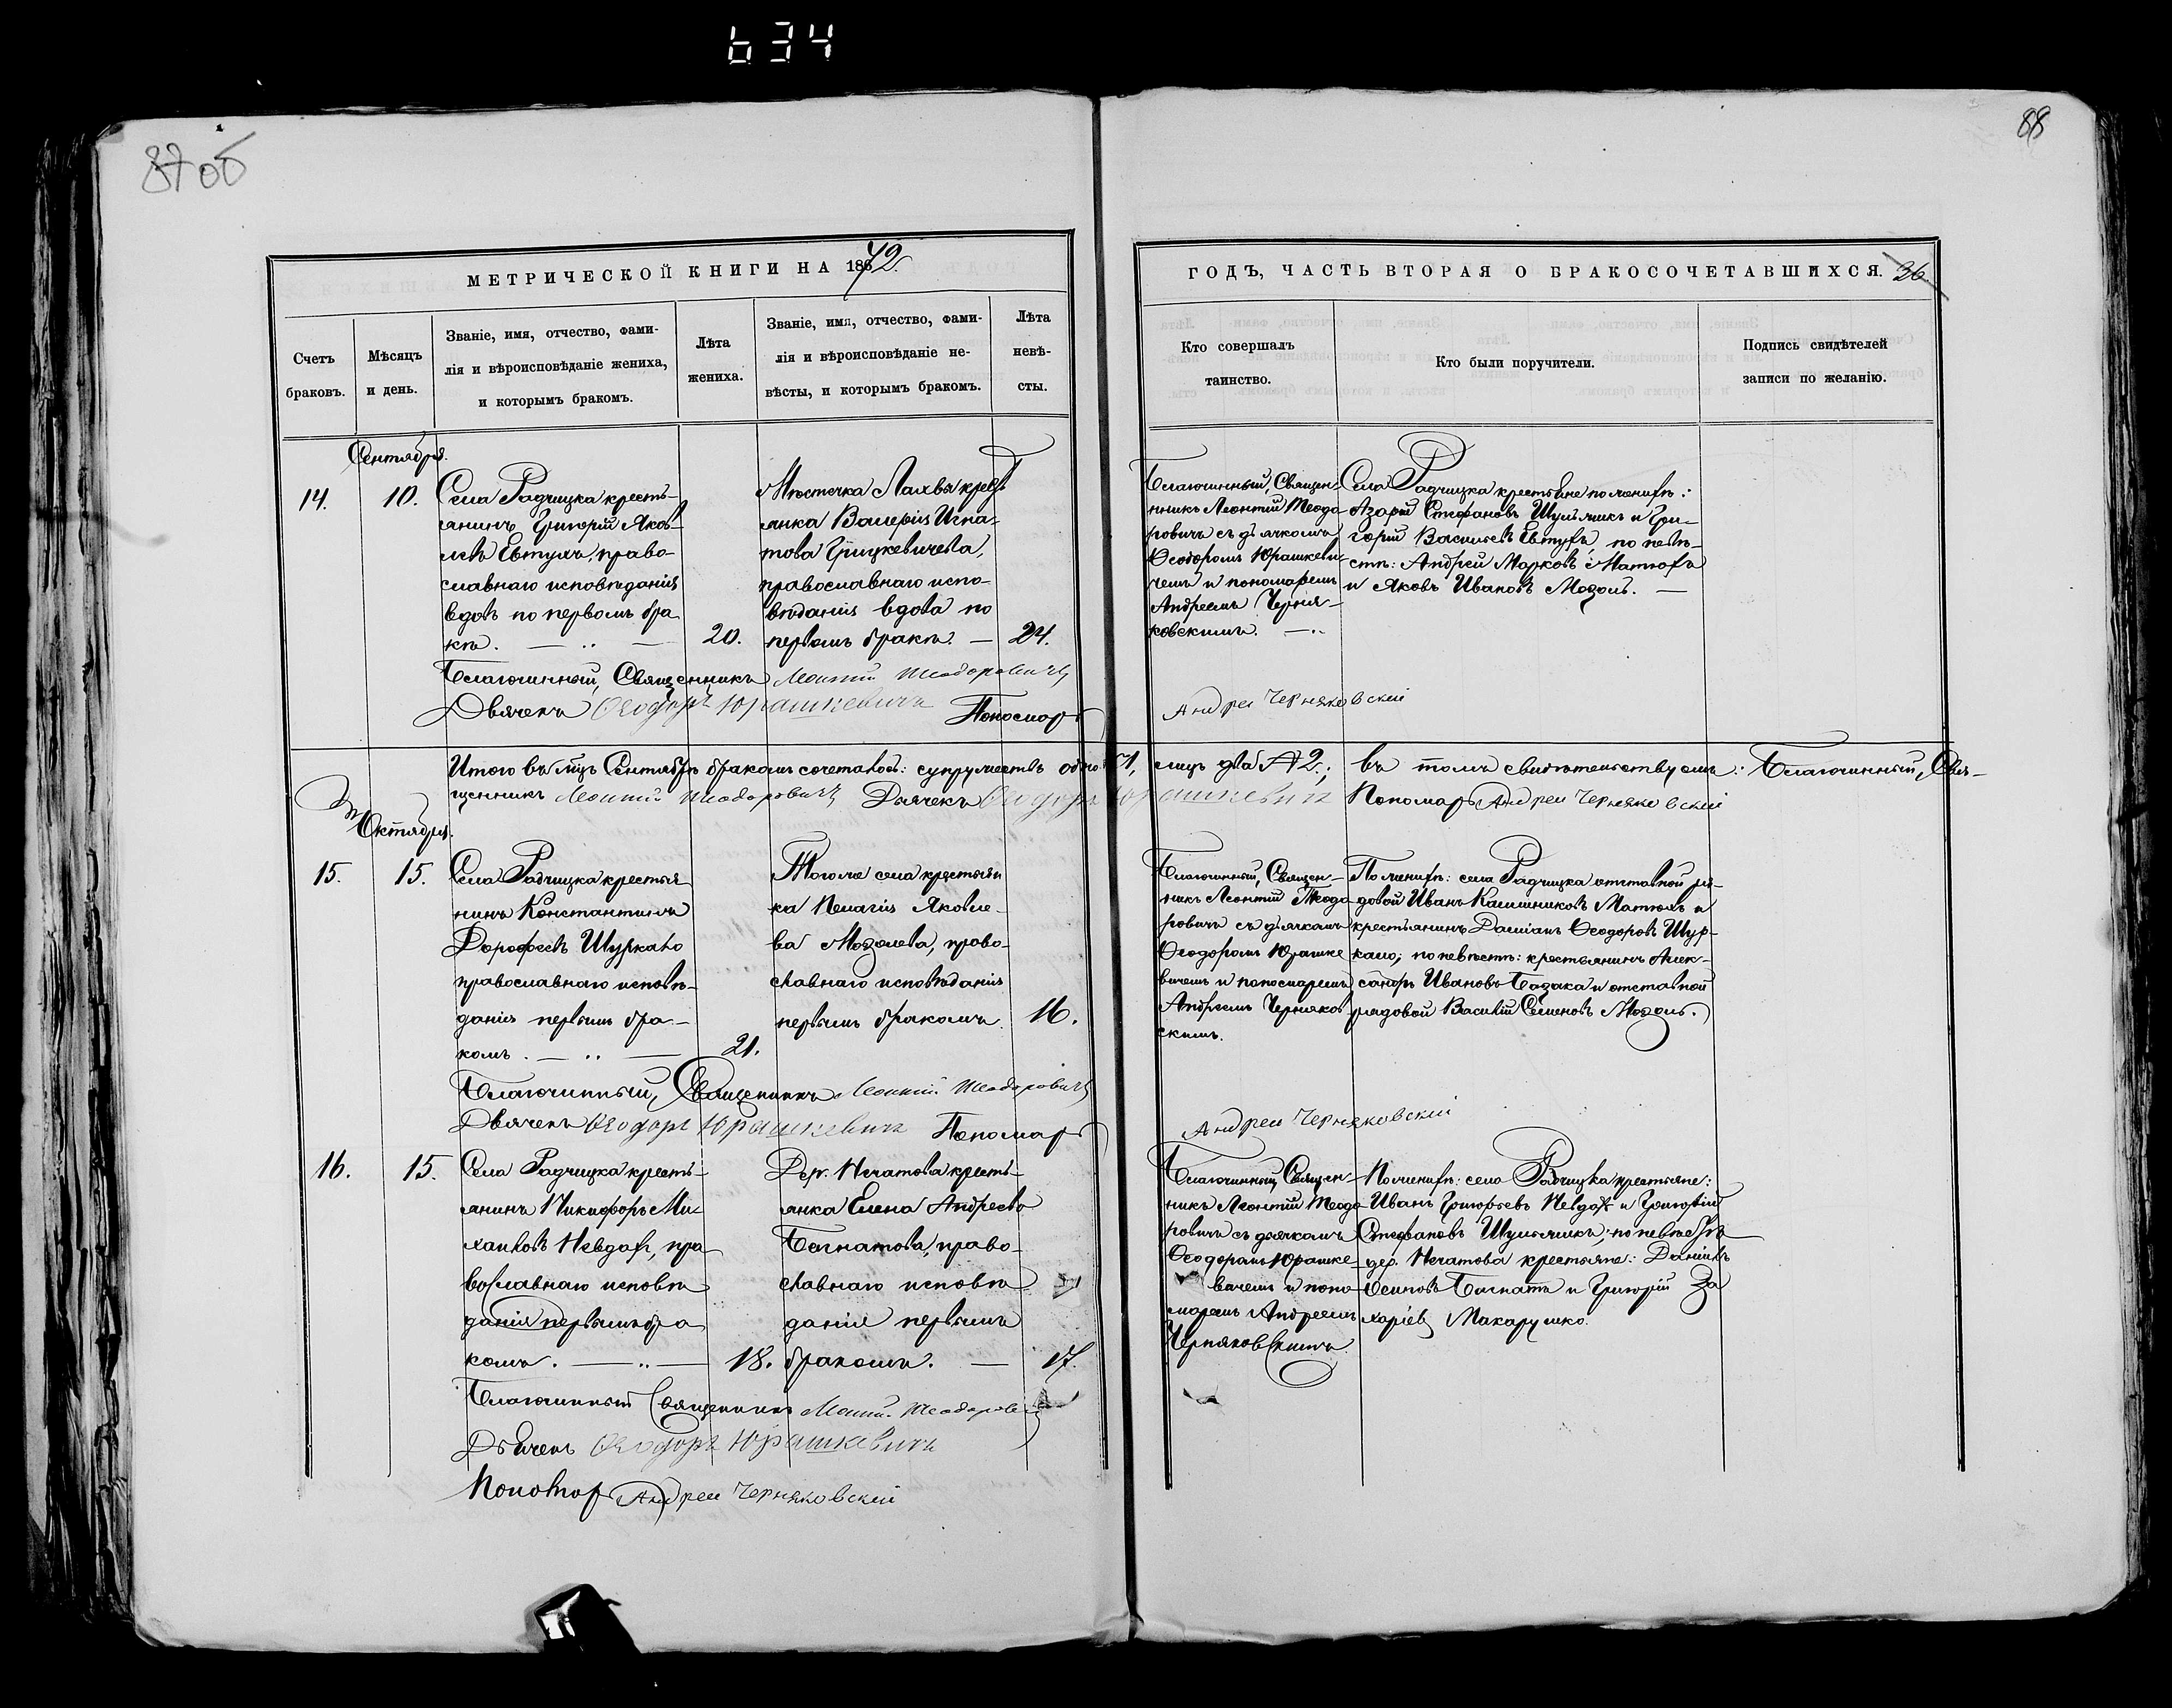 634
87 об
88
МЕТРИЧЕСКОЙ КНИГИ НА 1872.
ГОДЪ, ЧАСТЬ ВТОРАЯ О БРАКОСОЧЕТАВШИХСЯ. 36
Счетъ
браковъ.
Мѣсяцъ
и день.
Званіе, имя, отчество, фами-
лія и вѣроисповѣданіе жениха,
и которымъ бракомъ.
Лѣта
жениха.
Званіе, имя, отчество, фами-
лія и вѣроисповѣданіе не-
вѣсты, и которымъ бракомъ.
Лѣта
невѣ-
сты.
Кто совершалъ
таинство.
Кто были поручители.
Подпись свидѣтелей
записи по желанію.
Сентября.
14.
10.
Села Радчицка кресть-
янинъ Григорій Яков-
левъ Евтухъ, право-
славнаго исповѣданія
вдовъ по первомъ бра
кѣ.
20.
Мѣстечка Лахвы крест
янка Валерія Игна-
това Грицкевичева,
православнаго испо-
вѣданія вдова по
первомъ бракѣ.
24.
Благочинный, Священ-
никъ Леонтій Теодо
ровичъ съ дьячкомъ
Ѳеодоромъ Юрашкеви-
чемъ и пономаремъ
Андреемъ Черня-
ковскимъ.
Села Радчицка крестьяне по женихѣ:
Азарій Стефановъ Шульжикъ и Гри-
горій Васильевъ Евтухъ, по невѣ-
стѣ: Андрей Марковъ Матюхъ
и Яковъ Ивановъ Мозоль.
Благочинный, Священникъ Леонтій Теодоровичъ
Дьячекъ Ѳеодоръ Юрашкевичъ Пономарь
Андрей Черняковскій
Итого въ мцѣ Сентябрѣ бракомъ сочеталось: супружествъ одно 1, лицъ два 2.; въ томъ свидѣтельствуемъ: Благочинный, Свя-
щенникъ Леонтій Теодоровичъ Дьячекъ Ѳеодоръ Юрашкевичъ Пономарь Андрей Черняковскій
Октября.
15.
15.
Села Радчицка крестья
нинъ Константинъ
Дорофеевъ Шуркало
православнаго исповѣ-
данія первымъ бра-
комъ.
21.
Того же села крестьян
ка Пелагія Яковле-
ва Мозолева, право-
славнаго исповѣданія
первымъ бракомъ
16.
Благочинный, Священ-
никъ Леонтій Теодо
ровичъ съ дьячкомъ
Ѳеодоромъ Юрашке
вичемъ и пономаремъ
Андреемъ Черняков
скимъ.
По женихѣ: села Радчицка отставной ря-
довой Иванъ Калинниковъ Матюхъ и
крестьянинъ Даміанъ Ѳеодоровъ Шур-
кало; по невѣстѣ: крестьянинъ Алек-
сандръ Ивановъ Базака и отставной
рядовой Василій Семеновъ Мозоль.
Благочинный, Священникъ Леонтій Теодоровичъ
Дьячекъ Ѳеодоръ Юрашкевичъ Пономарь
Андрей Черняковскій
16.
15.
Села Радчицка кресть-
янинъ Никифоръ Ми-
хаиловъ Невдахъ, пра
вославнаго исповѣ
данія первымъ бра
комъ.
18.
Дер. Нечатова кресть-
янка Елена Андреева
Богнатова, право-
славнаго исповѣ
данія первымъ
бракомъ.
17.
Благочинный, Священ-
никъ Леонтій Теодо
ровичъ съ дьячкомъ
Ѳеодоромъ Юрашке-
вичемъ и поно
маремъ Андреемъ
Черняковскимъ
По женихѣ: села Радчицка крестьяне:
Иванъ Григорьевъ Невдахъ и Григорій
Стефановъ Шульжикъ; по невѣстѣ
дер. Нечатова крестьяне: Даніилъ
Осиповъ Богнатъ и Григорій За
харіевъ Макарушко.
Благочинный Священникъ Леонтій Теодоровичъ
Дьячекъ Ѳеодоръ Юрашкевичъ
Пономарь Андрей Черняковскій